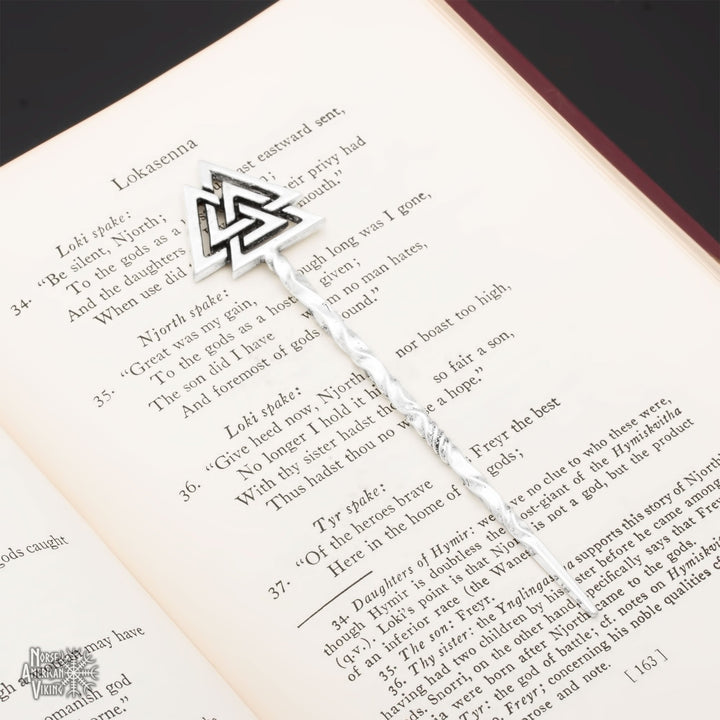 Lokasenna
Loki spake:
34. "Be silent, Njorth; east eastward sent,
To the gods as a
And the daughters privy had
When use did mouth."
Njorth spake:
35. "Great was my gain, long was I gone,
To the gods as a given;
The son did I have no man hates,
And foremost of gods
Loki spake:
36. "Give heed now, Njorth, nor boast too high,
No longer I hold it
With thy sister hadst so fair a son,
Thus hadst thou no a hope."
Tyr spake:
37. "Of the heroes brave Freyr the best
Here in the home of gods;
34. Daughters of Hymir: no clue to who these were,
though Hymir is doubtless the of the Hymiskvitha
(q.v.). Loki's point is that is not a god, but the product
of an inferior race (the
35. The son: Freyr.
36. Thy sister: the supports this story of Njorth
having had two children by his before he came among
Snorri, on the other specifically says that Frey
were born after came to the gods.
Tyr: the god of battle; cf. notes on Hymiskvi
Freyr; concerning his noble qualities
and note.
[163]
gods caught
may have
god
NORSE
AMERICAN
VIKING